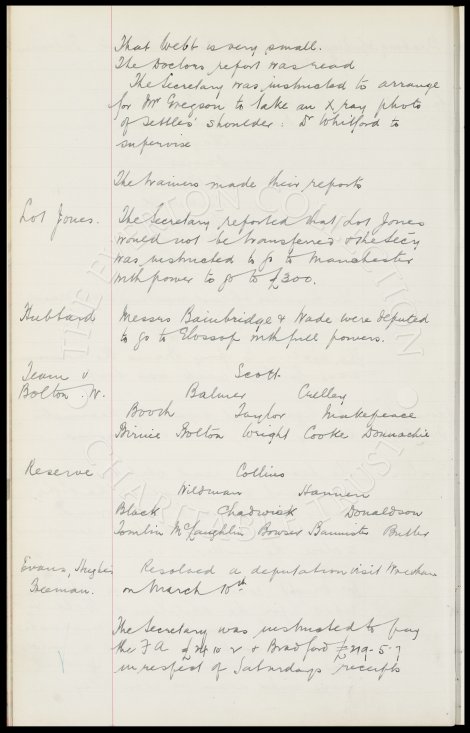 That Webb is very small.
The Doctors report was read
The Secretary was instructed to arrange
for Mr Gregson to take an X ray photo
of Settles' shoulder: Dr Whitford to
supervise
The trainers made their reports
Lot Jones. The Secretary reported that Lot Jones
would not be transferred & the Secy
was instructed to go to Manchester
with power to go to £300.
Hubbard Messrs Bainbridge & Wade were deputed
to go to Glossop with full powers.
Team v Scott
Bolton W. Balmer Crelley
Booth Taylor Makepeace
Birnie Bolton Wright Cooke Donnachie
Reserve Collins
Wildman Hannen
Black Chadwick Donaldson
Tomlin McLaughlin Bowser Bannister Butler
Evans, Hughes Resolved a deputation visit Wrexham
Freeman. on March 10th
The Secretary was instructed to pay
the F A & Bradford
in respect of Saturdays receipts
THE EVERTON COLLECTION
CHARITABLE TRUST